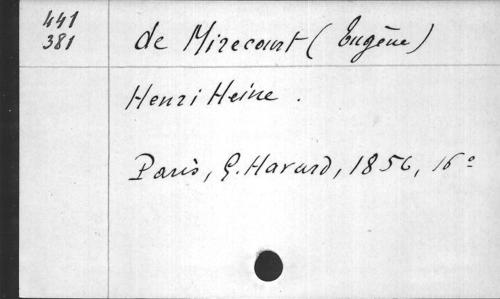 441
381
de Mirecourt (Eugène)
Henri Heine.
Paris, G. Havard, 1856, 16º